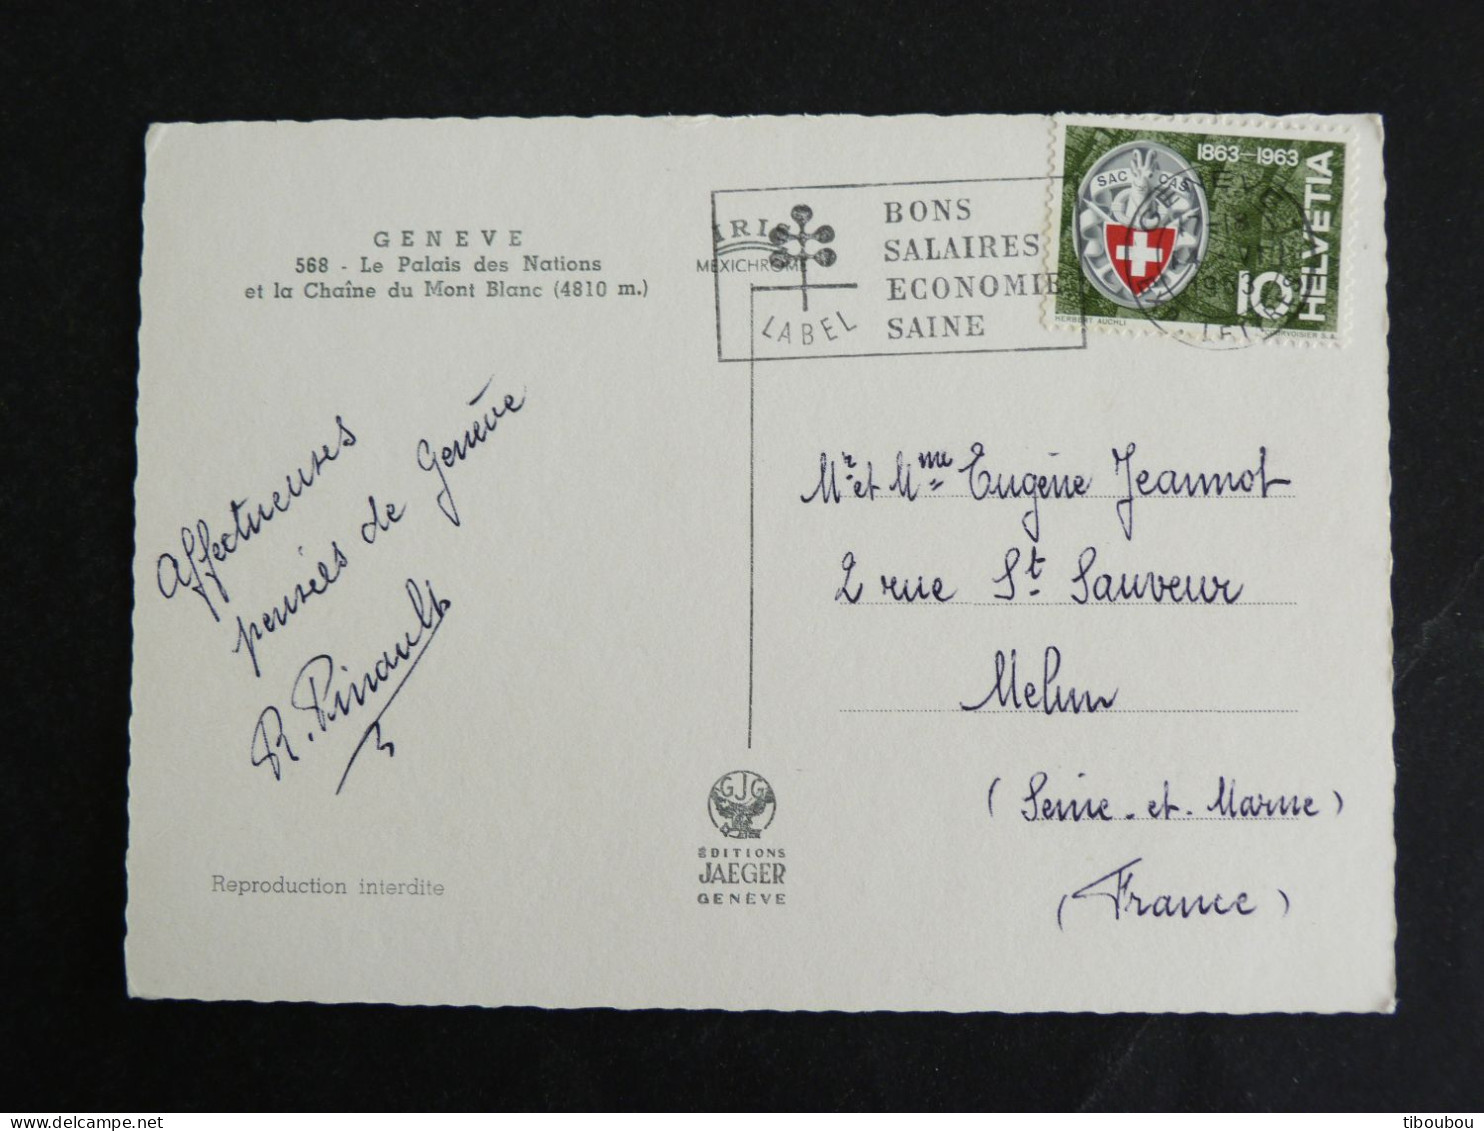 GENEVE
568 - Le Palais des Nations
et la Chaîne du Mont Blanc (4810 m.)
IRIS
MEXICHROME
LABEL
BONS
SALAIRES
ECONOMIE
SAINE
1863-1963
SAC CAS
HELVETIA
10
HERBERT AUCHLI
GENEVE
1963
Affectueuses
pensées de Genève
R. Pinault
Mr et Mme Eugène Jeannot
2 rue St Sauveur
Melun
(Seine-et-Marne)
(France)
GJG
ÉDITIONS
JAEGER
GENÈVE
Reproduction interdite
tiboubou